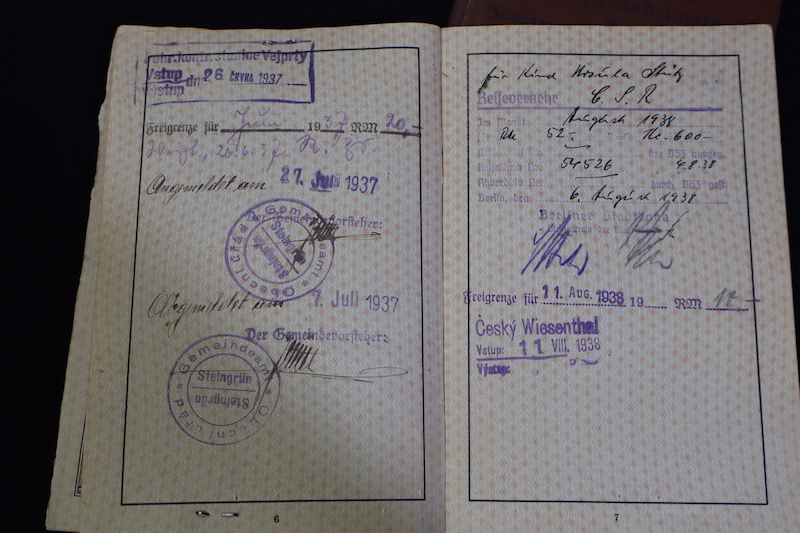 Pohr. kontr. stanice Vejprty
Vstup dne 26. ČRVNA 1937
Výstup
Freigrenze für Juni 1937 RM 20,-
26.6.37.
Angemeldet am 27. Juni 1937
Der Gemeindevorsteher:
Gemeindeamt * Obecní úřad *
Steingrün
Steingrün
Abgemeldet am 7. Juli 1937
Der Gemeindevorsteher:
Gemeindeamt * Obecní úřad *
Steingrün
Steingrün
6
für Kind Ursula
Reiseverkehr C. S. R
Im Monat August 1938
Rk 52.- Kc. 600-
54526 4.8.38
Berlin, den 6. August 1938
Berliner Stadtbank
Freigrenze für 11. Aug. 1938 19 RM 10.-
Český Wiesenthal
Vstup: 11 VIII. 1938
Výstup:
7